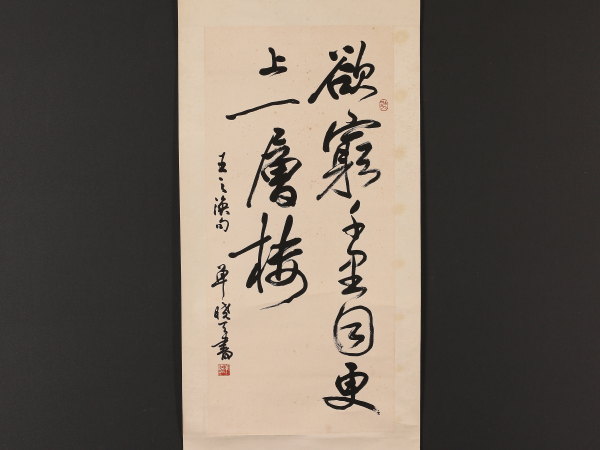 欲窮千里目更
上一層楼
王之渙句
單曉天書